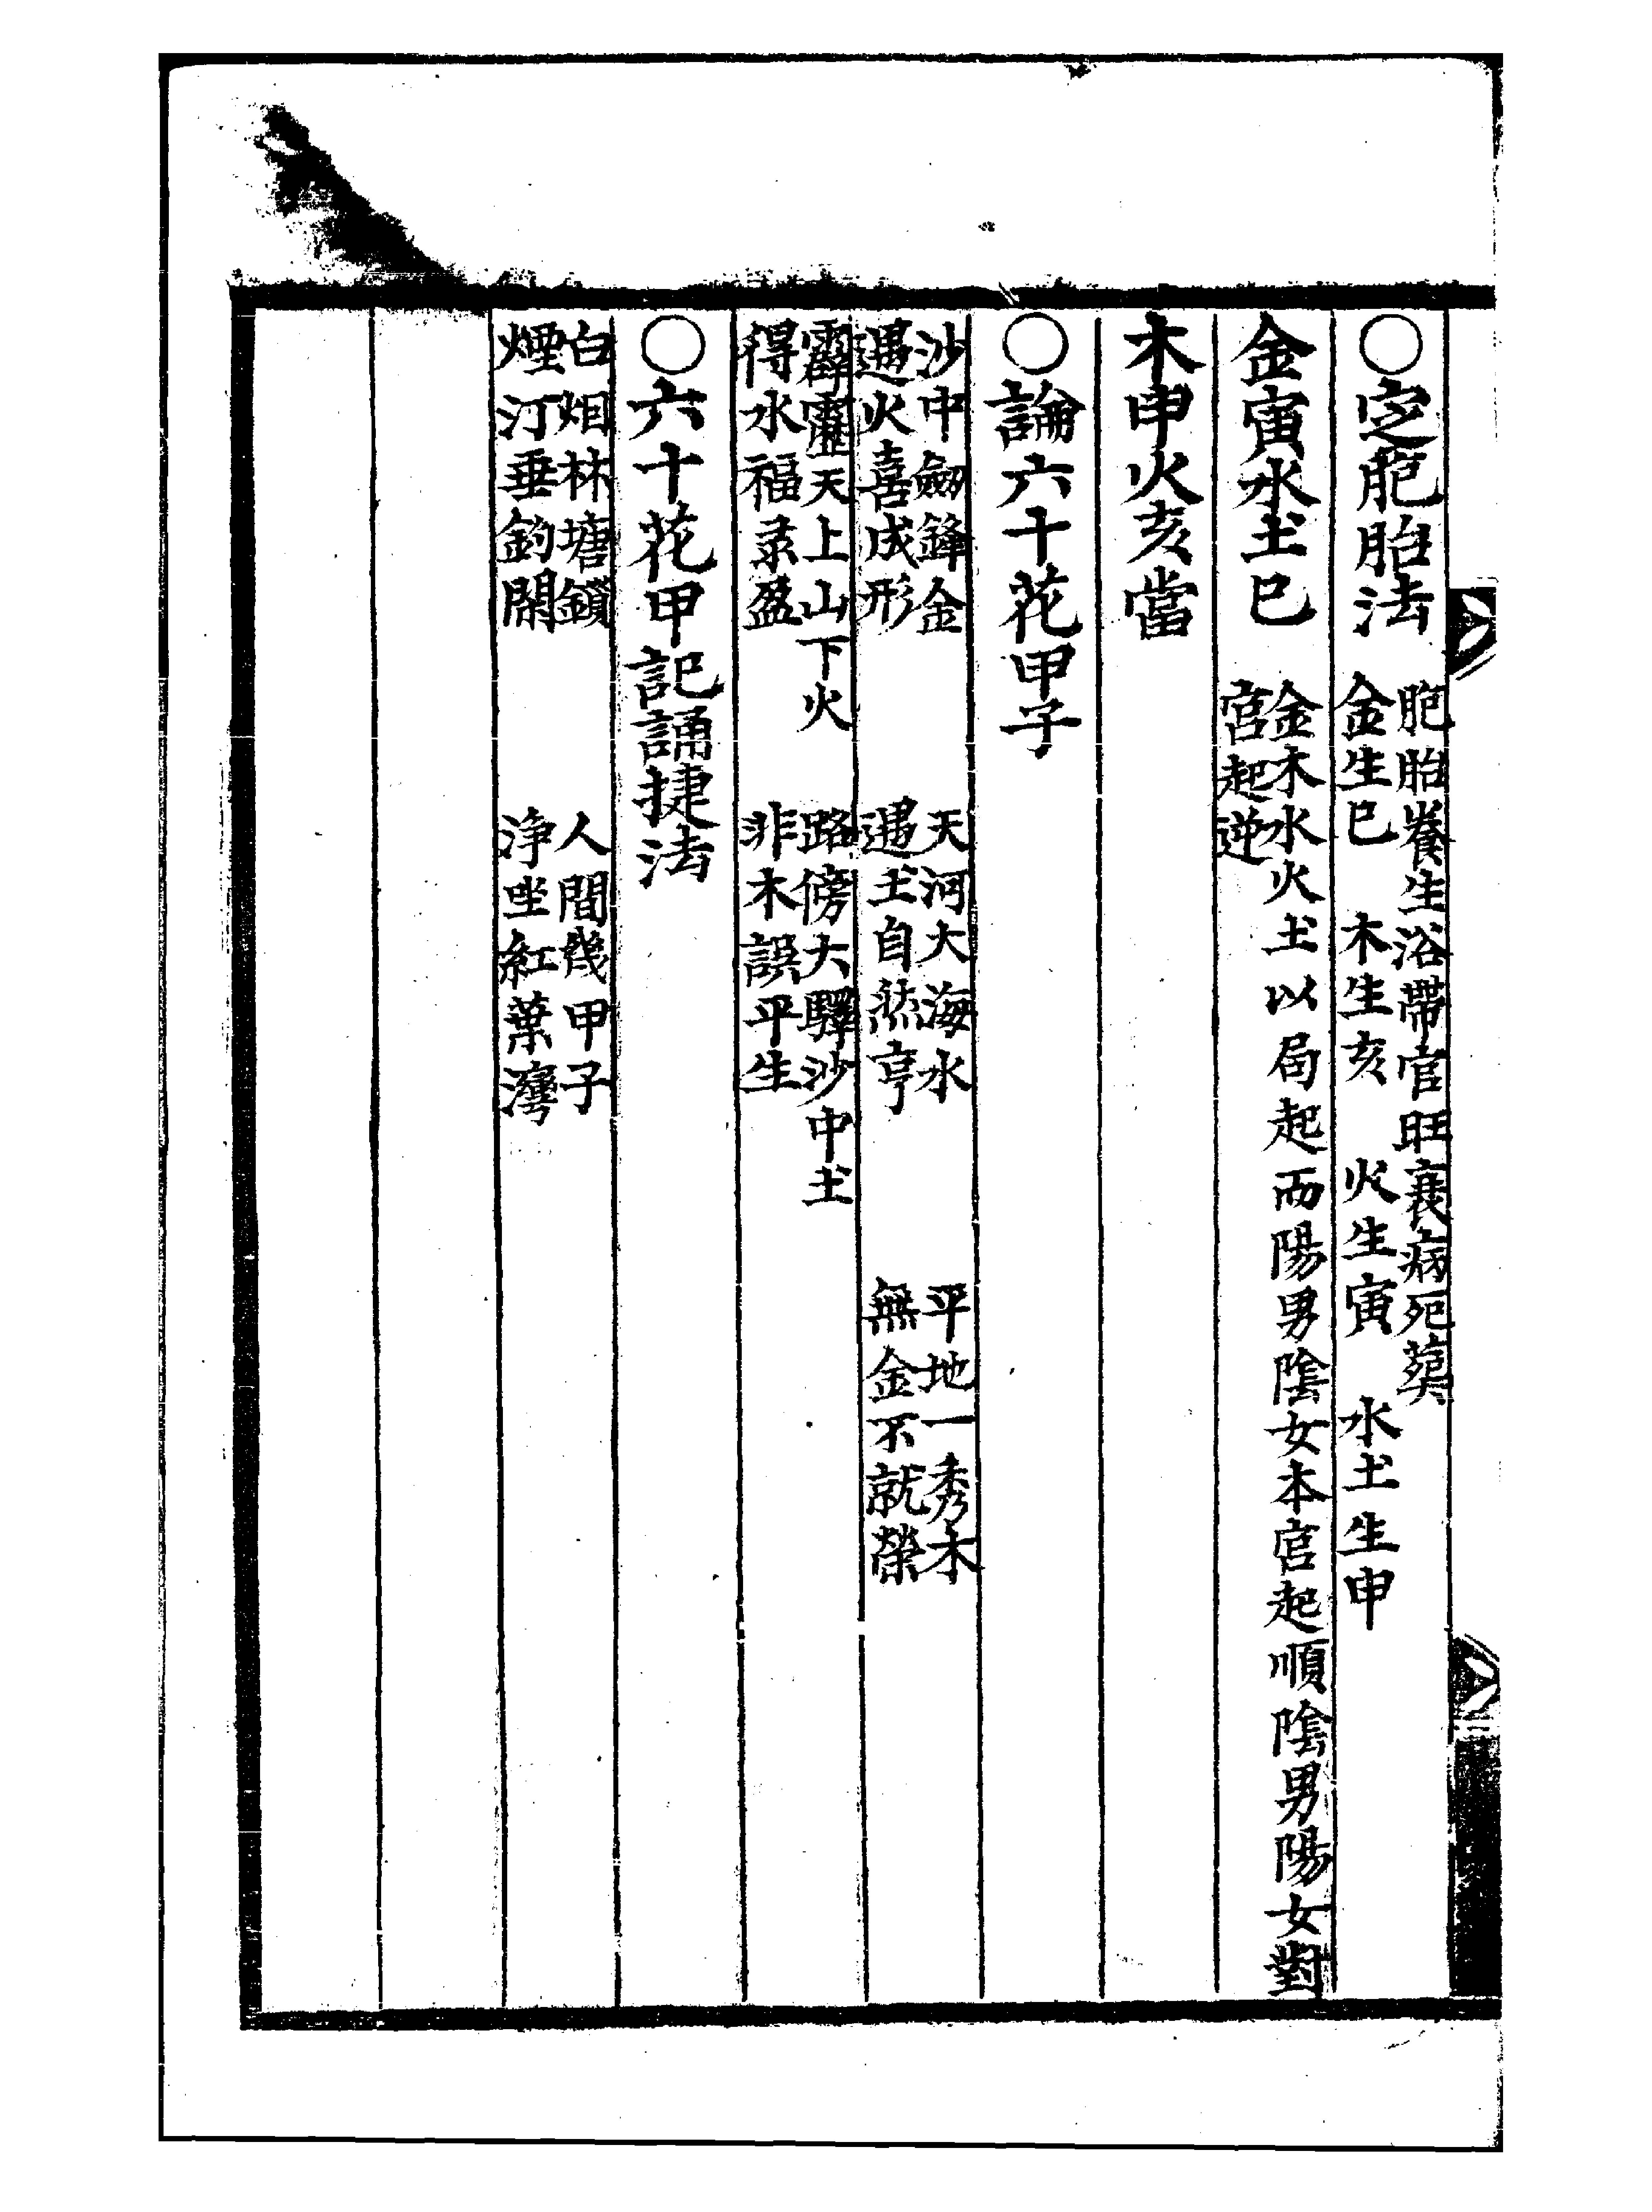 ○定胞胎法
胞胎養生浴帶官旺衰病死葬
金生巳 木生亥 火生寅 水土生申
金寅水土巳
金木水火土以局起而陽男陰女本宮起順陰男陽女對
宮起逆
木申火亥當
○論六十花甲子
沙中劒鋒金 天河大海水 平地一秀木
遇火喜成形 遇土自然亨 無金不就榮
霹靂天上山下火 路傍大驛沙中土
得水福彔盈 非木誤平生
○六十花甲記誦捷法
白烟林塘鎖 人間幾甲子
煙汀垂釣閑 浄坐紅葉灣